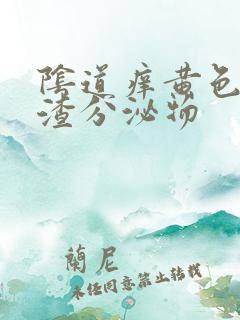 陰道痒黄色
渣分泌物
蘭尼
未经同意禁止转载